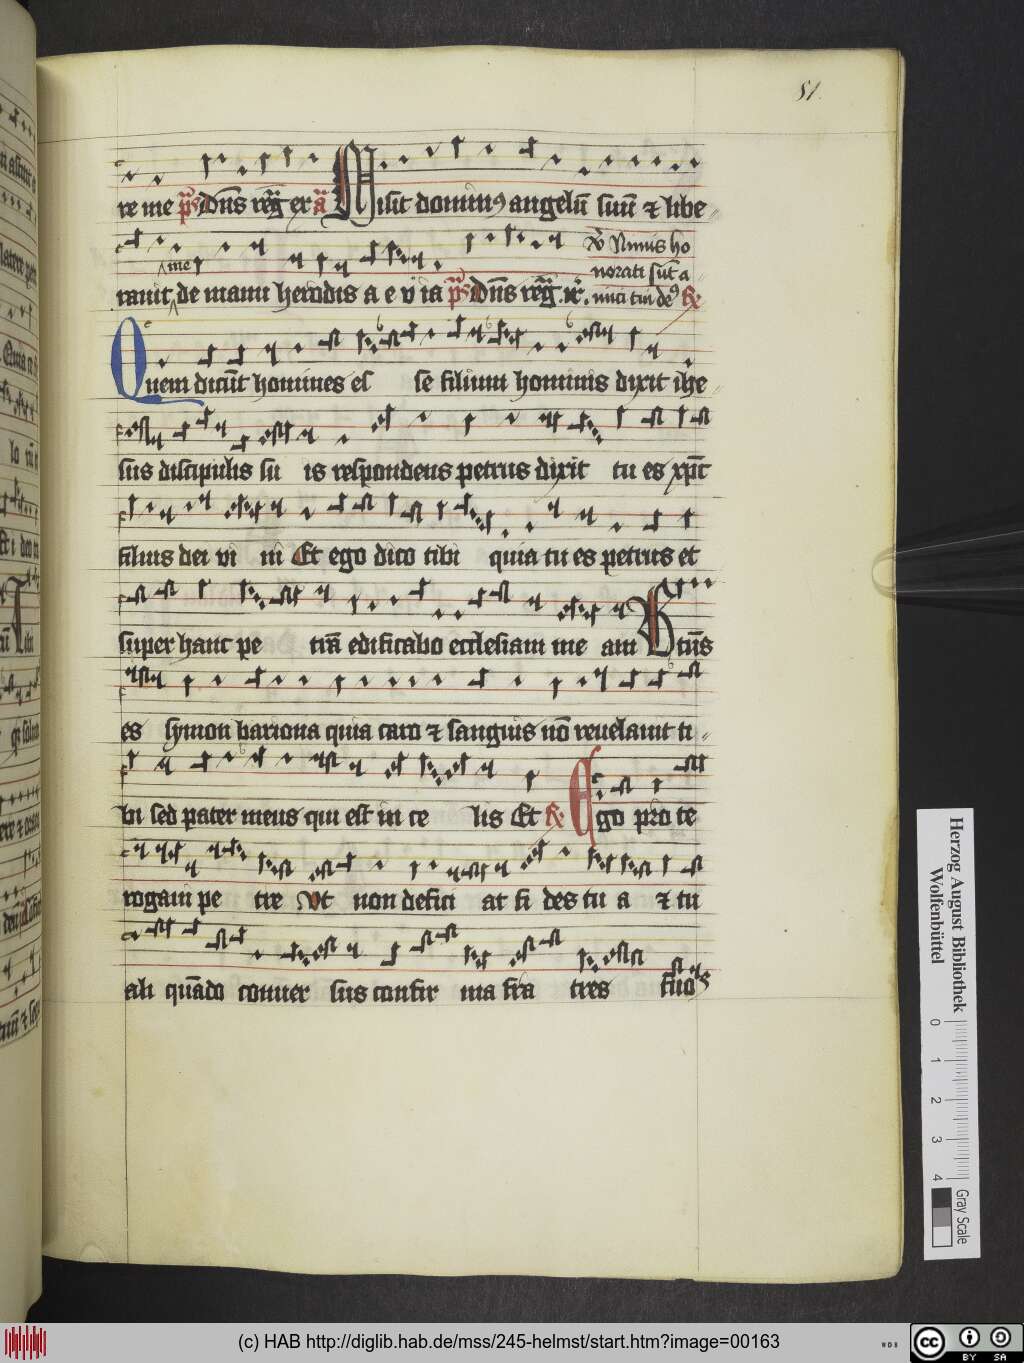 81.
re me ps. Dn̄s regn̄ er a Misit dominꝰ angelū suū ⁊ libe⸗
rauit me de manu herodis a e v ia ps Dn̄s regn̄. ℣ Nimis ho
norati sūt a⸗
mici tui deꝰ
Quem dicūt homines es se filium hominis dixit ihe⸗
sus discipulis su is respondens petrus dixit tu es xp̄c
filius dei vi ui Et ego dico tibi quia tu es petrus et
super hanc pe trā edificabo ecclesiam me am Btūs
es symon bariona quia caro ⁊ sanguis nō reuelauit ti⸗
bi sed pater meus qui est in ce lis Et Ego pro te
rogaui pe tre Vt non defici at fi des tu a ⁊ tu
ali quādo conuer sus confir ma fra tres
Herzog August Bibliothek
Wolfenbüttel
0 1 2 3 4
Gray Scale
(c) HAB http://diglib.hab.de/mss/245-helmst/start.htm?image=00163
WDB
cc BY SA